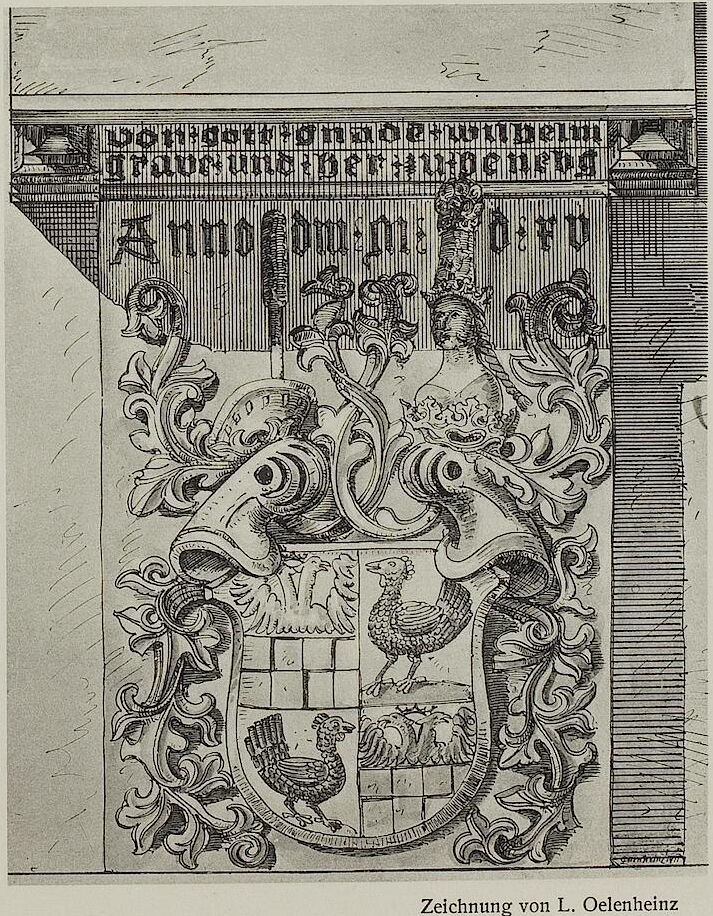 von·gott·gnade·wilhelm
grave·und:her·zu·henebg
Anno dm·m: d·xv
Zeichnung von L. Oelenheinz